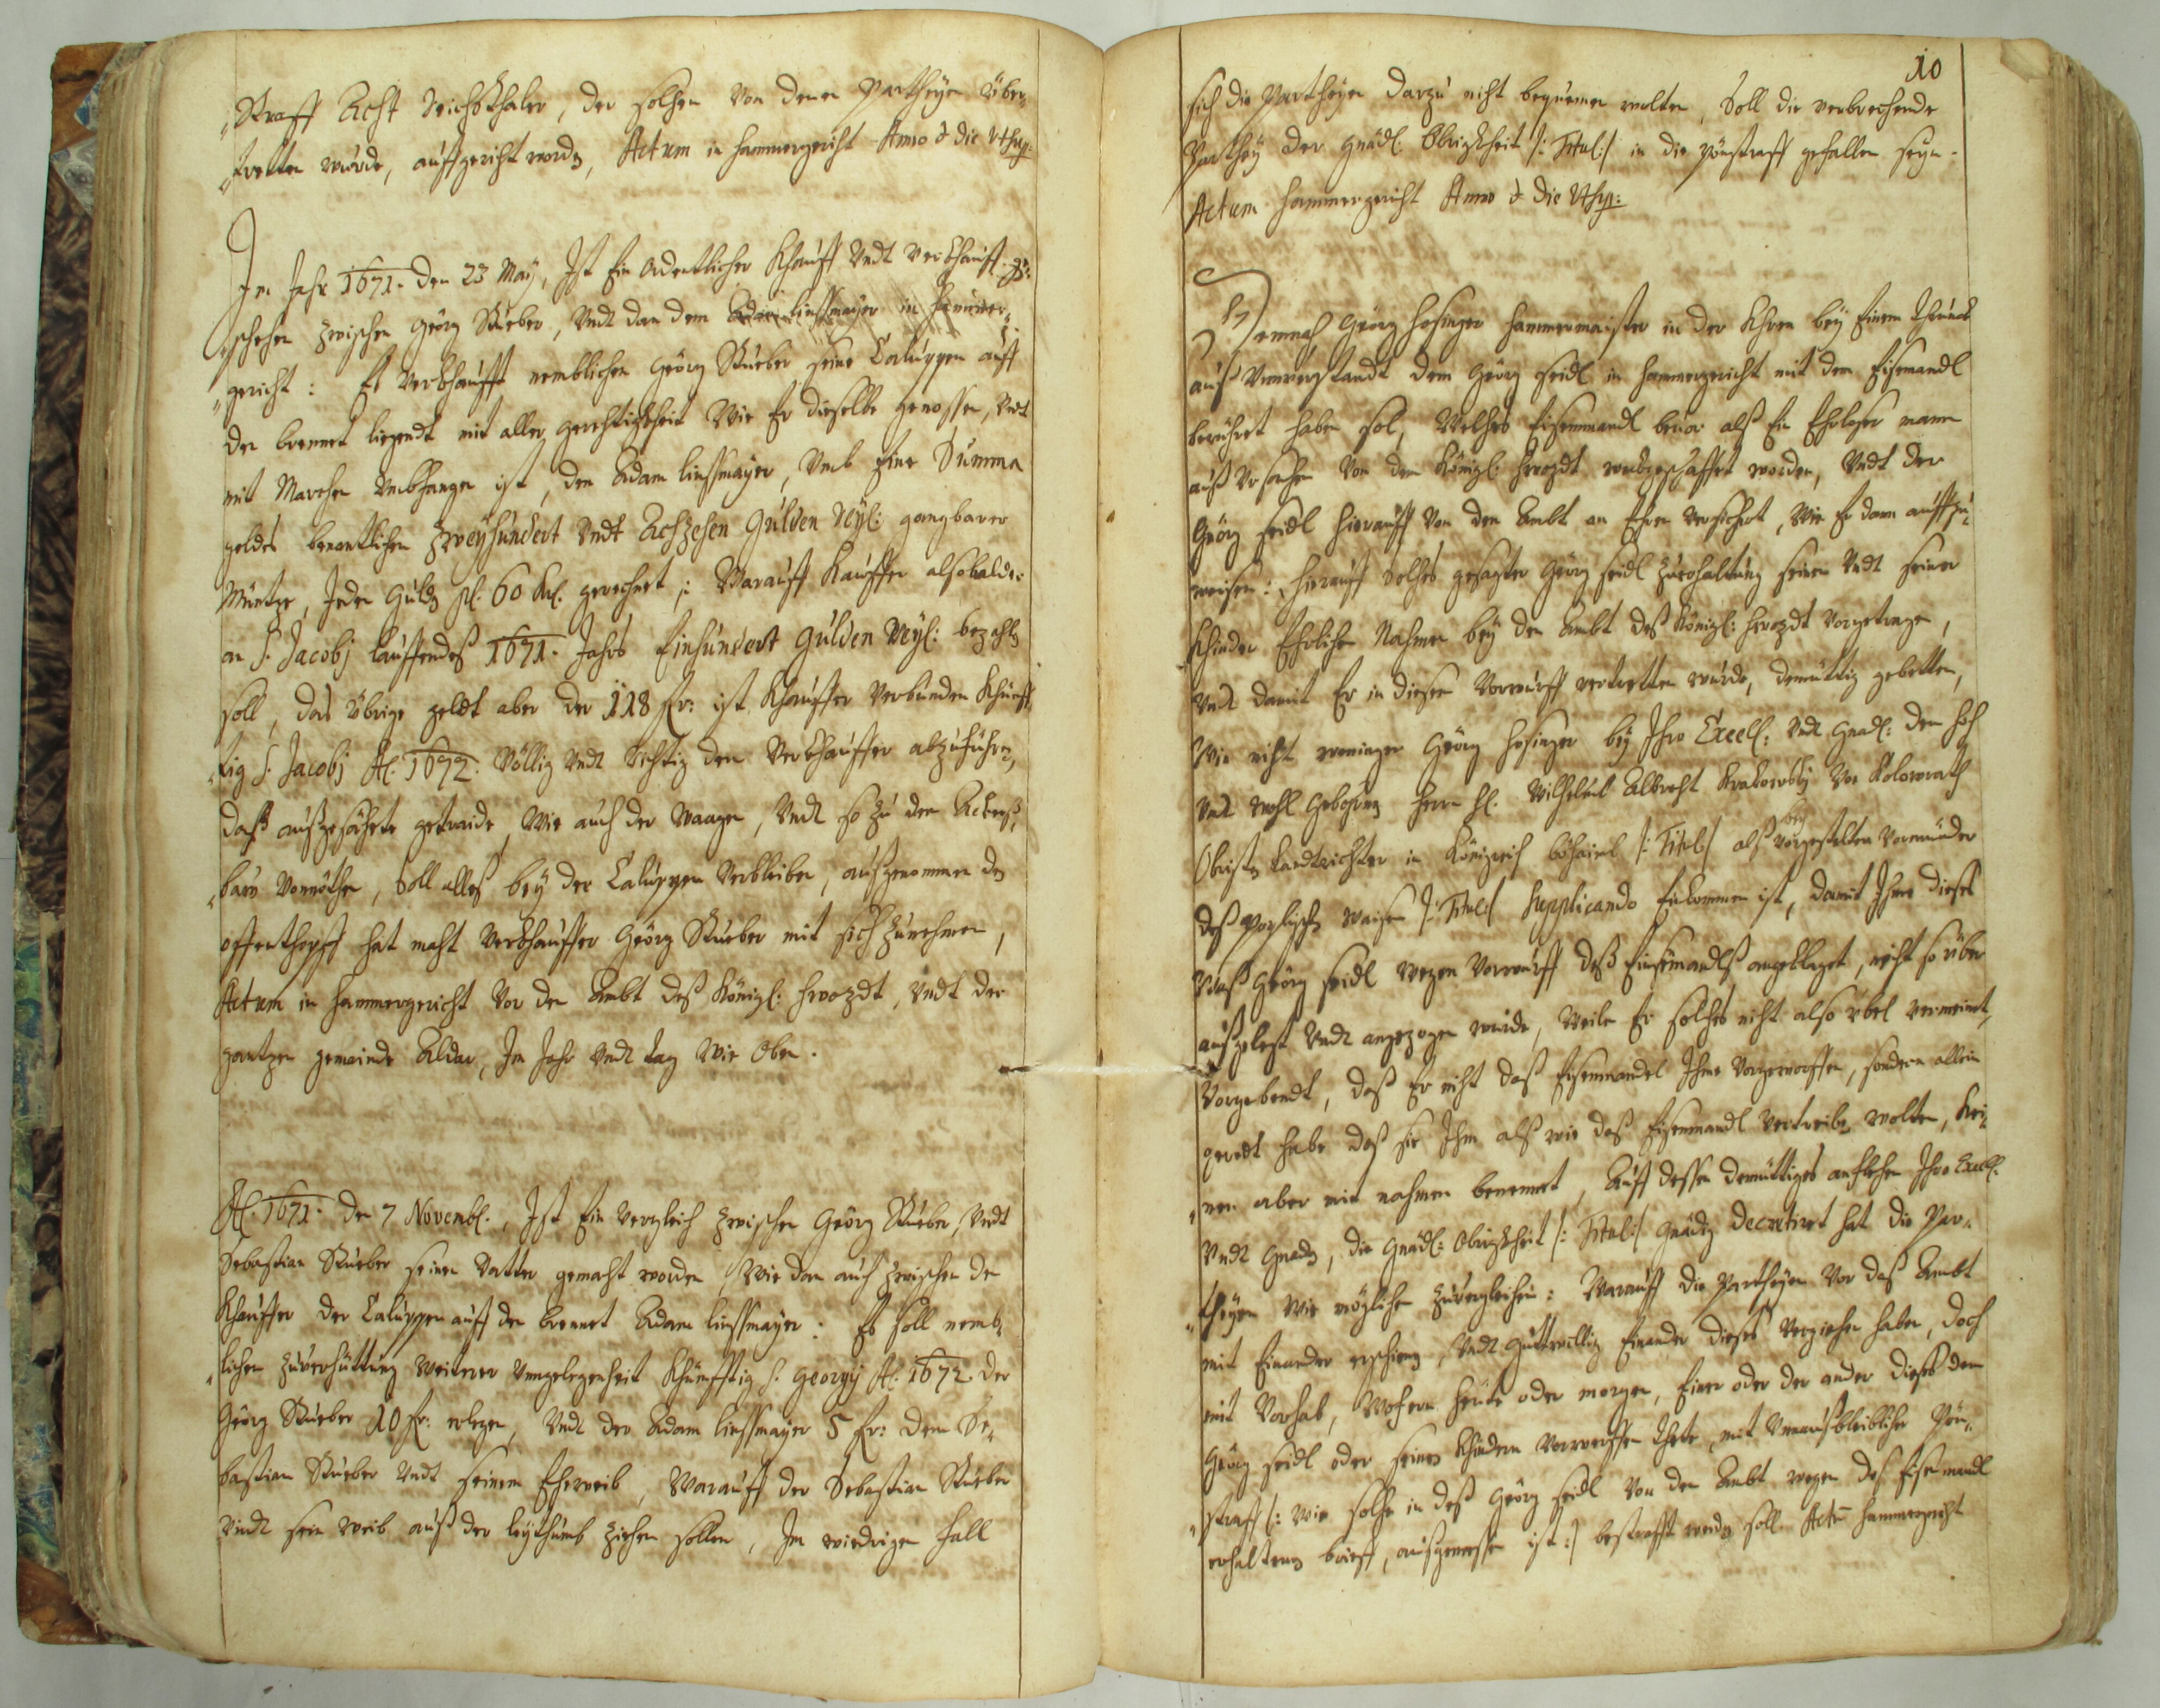 Straff Acht Reichsthaler, der solchen von denen Partheyen über-
tretten wurde, auffgericht worden, Actum in Hammergericht Anno & die
Im Jahr 1671. den 23 May, Ist Ein Ordentlicher Khauff Undt Verkhauff ge-
schehen zwischen Georg Stueber, Undt dan dem Adam linssmayer in Hammer-
gericht: Es Verkhaufft nemblichen Georg Stueber seine Caluppen auff
der brennet liegendt mit aller gerechtigkheit Wie Er dieselbe genossen, Undt
mit Marchen Umbfangen ist, dem Adam linssmayer, Umb Eine Summa
geldes benantlichen Zweyhundert Undt Achzehen Gulden Rhl: gangbarer
Müntze, Jeden Guld pl. 60 Kr. gerechnet; Warauff Kauffer alsobalde
an S. Jacobj lauffendeß 1671. Jahrs Einhundert Gulden Rhl: bezahlen
soll, das übrige geldt aber der 118 fr: ist Khauffer Verbunden Khünff-
tig S. Jacobj A. 1672. Völlig Undt Richtig dem Verkhauffer abzuführen,
daß außgesähete getraide, Wie auch der Waagen, Undt so zu dem Ackerß-
baw Vonnöthen, soll alles bey der Caluppen Verbleiben, außgenommen den
offenthopff hat macht Verkhauffer Georg Stueber mit sich zunehmen,
Actum in Hammergericht Vor dem Ambt deß Königl: Hwozdt, Undt der
gantzen gemeinde Alda, Im Jahr Undt tag Wie Oben.
A. 1671. den 7 Novembl., Ist Ein Vergleich zwischen Georg Stueber, Undt
Sebastian Stueber seinen Vatter gemacht worden, Wie dan auch zwischen dem
Khauffer der Caluppen auff der brennet Adam linssmayer: Es soll nemb-
lichen zuverhüttung Weiterer Ungelegenheit Khünfftig S. Georgy A. 1672 der
Georg Stueber 10 fr: erlegen, Undt der Adam linssmayer 5 fr: dem Se-
bastian Stueber Undt seinem Eheweib, Warauff der Sebastian Stueber
Undt sein weib auß der leythumb ziehen sollen, Im wiedrigen fall
10
sich die Partheyen darzu nicht bequemen wolten, Soll die verbrechende
Parthey der Gnädl: Obrigkheit /: Titul:/ in die pönstraff gefallen seyn.
Actum Hammergericht Anno & die
Demnach Georg Hosinger Hammermaister in der Khren bey Einem
auß Unverstandt dem Georg Seidl in Hammergericht mit dem Eisenmandl
berühret haben sol, Welches Eisenmandl bevor alß Ein Ehrloser mann
auß Ursachen Von dem Königl: Hwozdt wekgeschaffet worden, Undt der
Georg Seidl hierauff Von dem Ambt an Ehren Versichert, Wie Er dann auffzu-
weisen: Hierauff solches gesagter Georg Seidl zuerhaltung seinen Undt seiner
Khinder Ehrlichen Nahmen bey dem Ambt deß Königl: Hwozdt Vorgetragen,
Undt damit Er in diesem Vorwurff vertretten wurde, demüttig gebetten,
Wie nicht weniger Georg Hosinger bey Ihro Excell: Undt Gnadl: dem hoch
Undt Wohl Gebohrnen Herrn Hl. Wilhelmb Albrecht Krakowsky Von Kolowrath
Obristen Landtrichter in Königreich böhaimb /: Titul:/ alß
bey
Vorgestelten Vormunder
deß waisen /: Titul:/ Supplicando Einkommen ist, damit Ihme dieses
Waß Georg Seidl wegen Vorwurff deß Einsemandlß angeklaget, nicht so übel
außgelegt Undt angezogen wurde, Weile Er solches nicht also übel vermeint,
Vorgebendt, daß Er nicht daß Eisenmandel Ihme Vorgeworffen, sondern allein
geredt habe daß sie Ihm alß wie daß Eisenmandl Vertreiben wolten, Kei-
nen aber mit nahmen benennet, Auff dessen demüttiges anflehen Ihro Excell.
Undt Gnaden, die Gnädl: Obrigkheit /: Titul:/ Gnädig decretiret hat die Par-
theyen Wie möglichen zuvergleichen: Warauff die Partheyen Vor daß Ambt
mit Einander erschienen, Undt Guttwillig Einander dieses Verziehen haben, doch
mit Vorhab, Wofern heute oder morgen, Einer oder der ander dieses dem
Georg Seidl oder seinen Khindern Vorwerffen thete, mit Unaußbleiblicher Pön-
straff /: Wie solche in deß Georg Seidl Von dem Ambt wegen des Eisenmandl
erhaltenen brieff, außgemessen ist :/ bestrafft werden soll. Actum Hammergericht